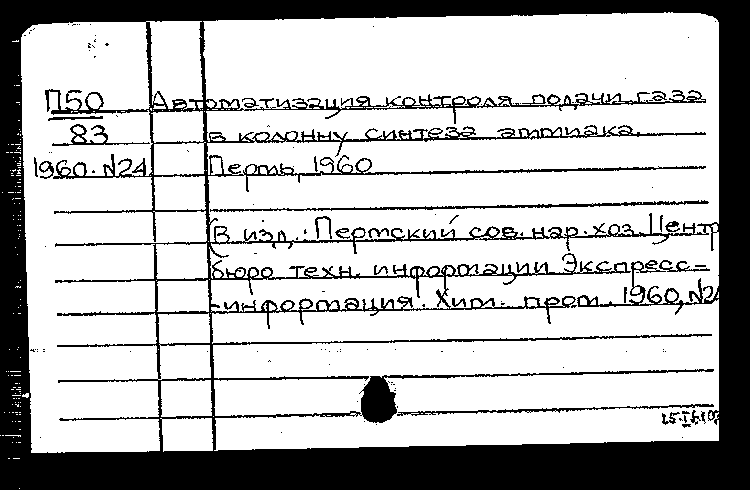 П50 Автоматизация контроля подачи газа
83 в колонну синтеза аммиака.
1960.N24 Пермь, 1960
(В изд.: Пермский сов. нар. хоз. Центр
бюро техн. информации Экспресс-
-информация. Хим. пром. 1960, N24